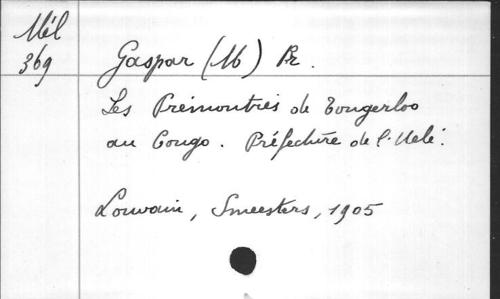 Mél
369
Gaspar (M) Pr.
Les Prémontrés de Tongerloo
au Congo. Préfecture de l'Uelé.
Louvain, Smeesters, 1905